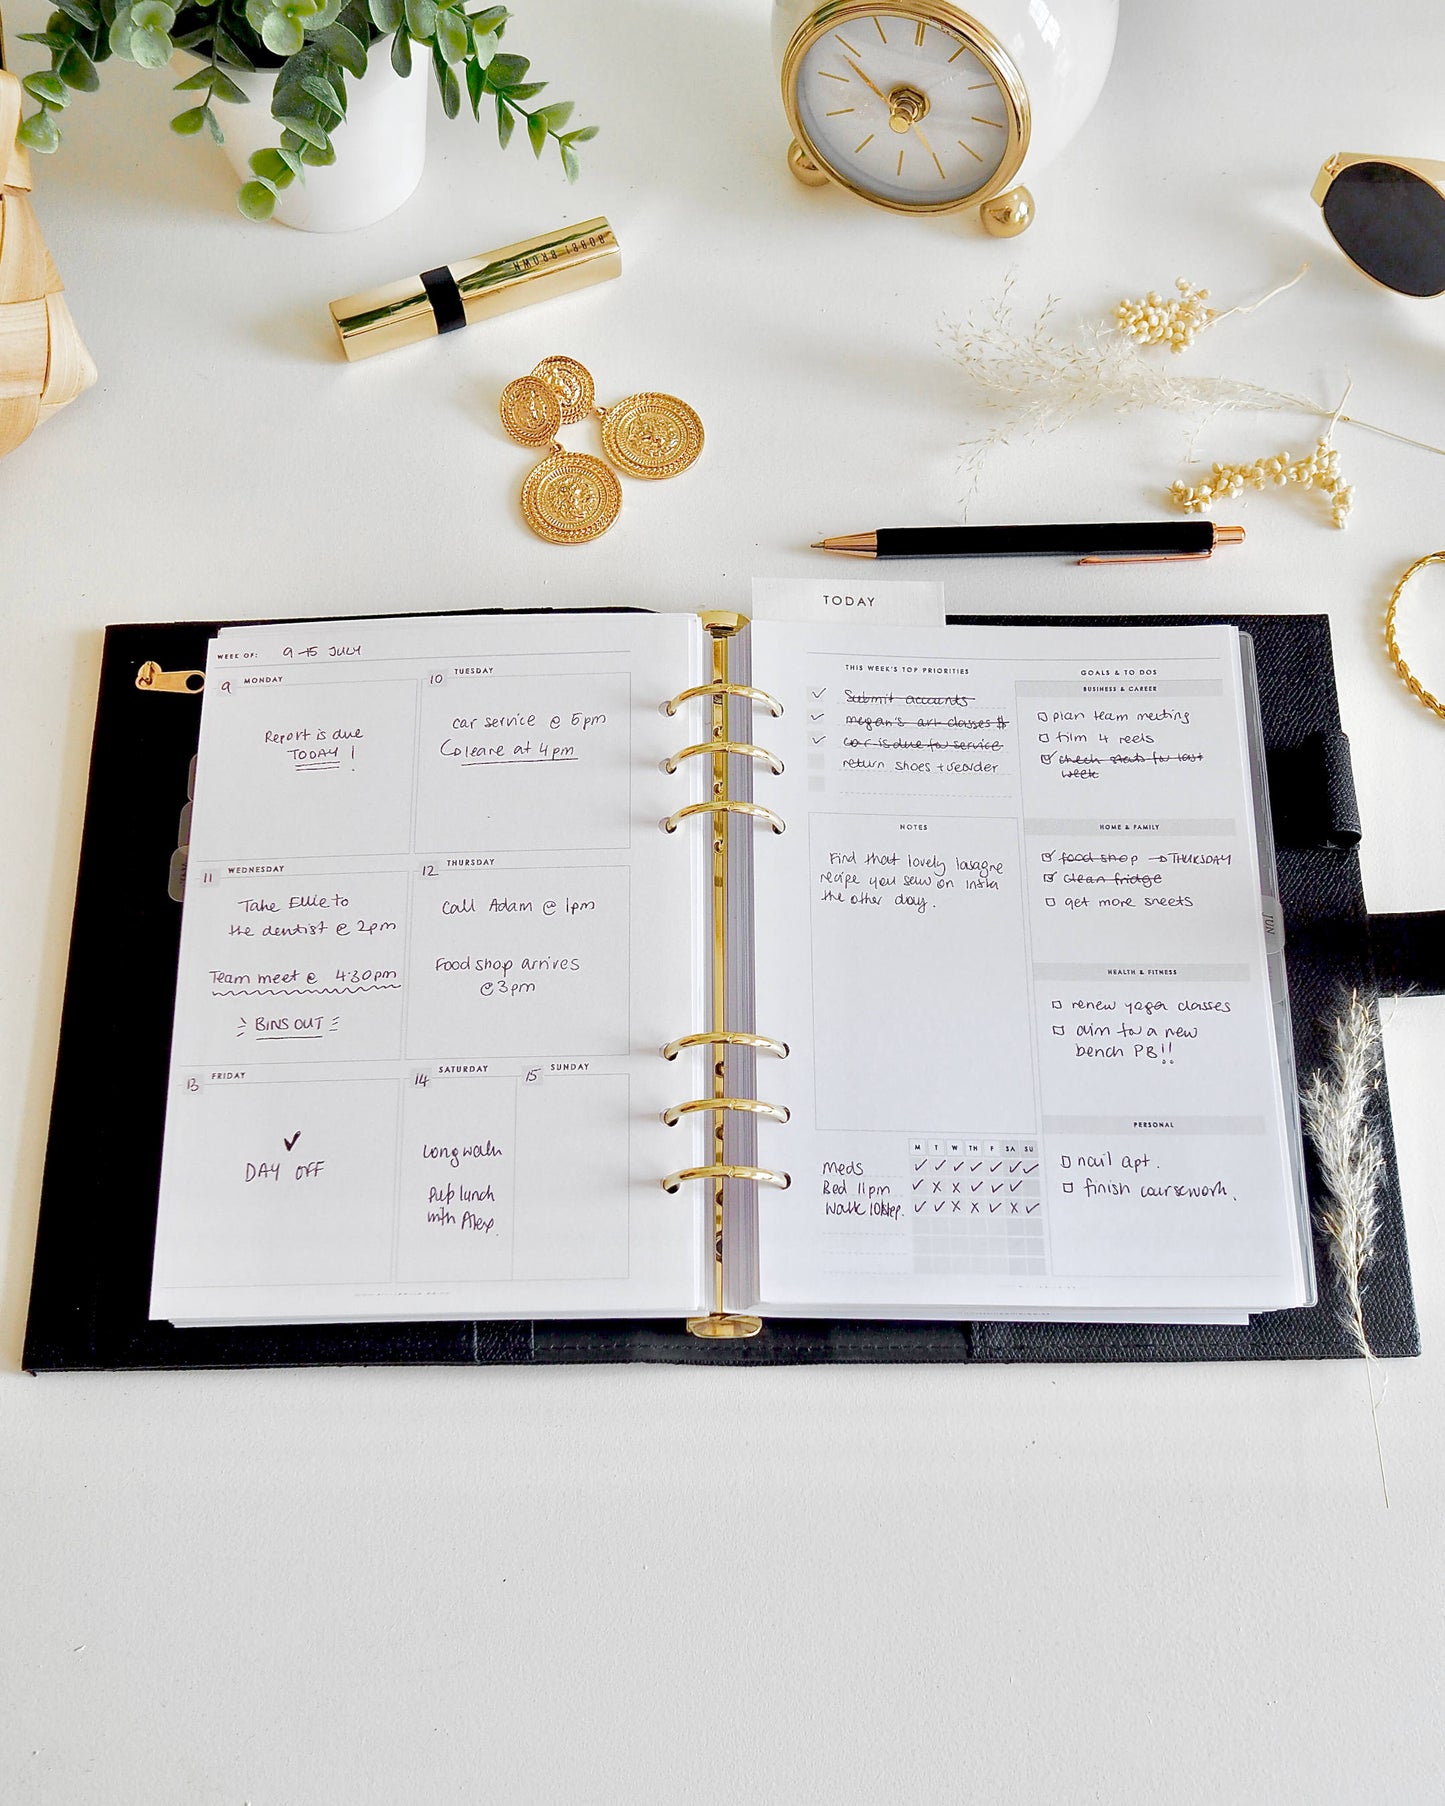 BOBBI BROWN
TODAY
WEEK OF: 9-15 JULY
9 MONDAY
Report is due
TODAY !
10 TUESDAY
car service @ 5pm
Coleane at 4pm
11 WEDNESDAY
Take Ellie to
the dentist @ 2pm
Team meet @ 4:30pm
BINS OUT
12 THURSDAY
Call Adam @ 1pm
Food shop arrives
@ 3pm
13 FRIDAY
✓
DAY OFF
14 SATURDAY
Long walk
Pub lunch
with Alex.
15 SUNDAY
THIS WEEK'S TOP PRIORITIES
✓ Submit accounts
✓ megan's art classes $
✓ car is due for service
return shoes + reorder
NOTES
Find that lovely lasagne
recipe you saw on insta
the other day.
M T W TH F SA SU
Meds ✓ ✓ ✓ ✓ ✓ ✓ ✓
Bed 11pm ✓ X X ✓ ✓ ✓
Walk 10kstep. ✓ ✓ X X ✓ X ✓
GOALS & TO DOS
BUSINESS & CAREER
plan team meeting
film 4 reels
check stats for last
week
HOME & FAMILY
food shop → THURSDAY
clean fridge
get more sheets
HEALTH & FITNESS
renew yoga classes
aim for a new
bench PB!!
PERSONAL
nail apt.
finish coursework.
JUN